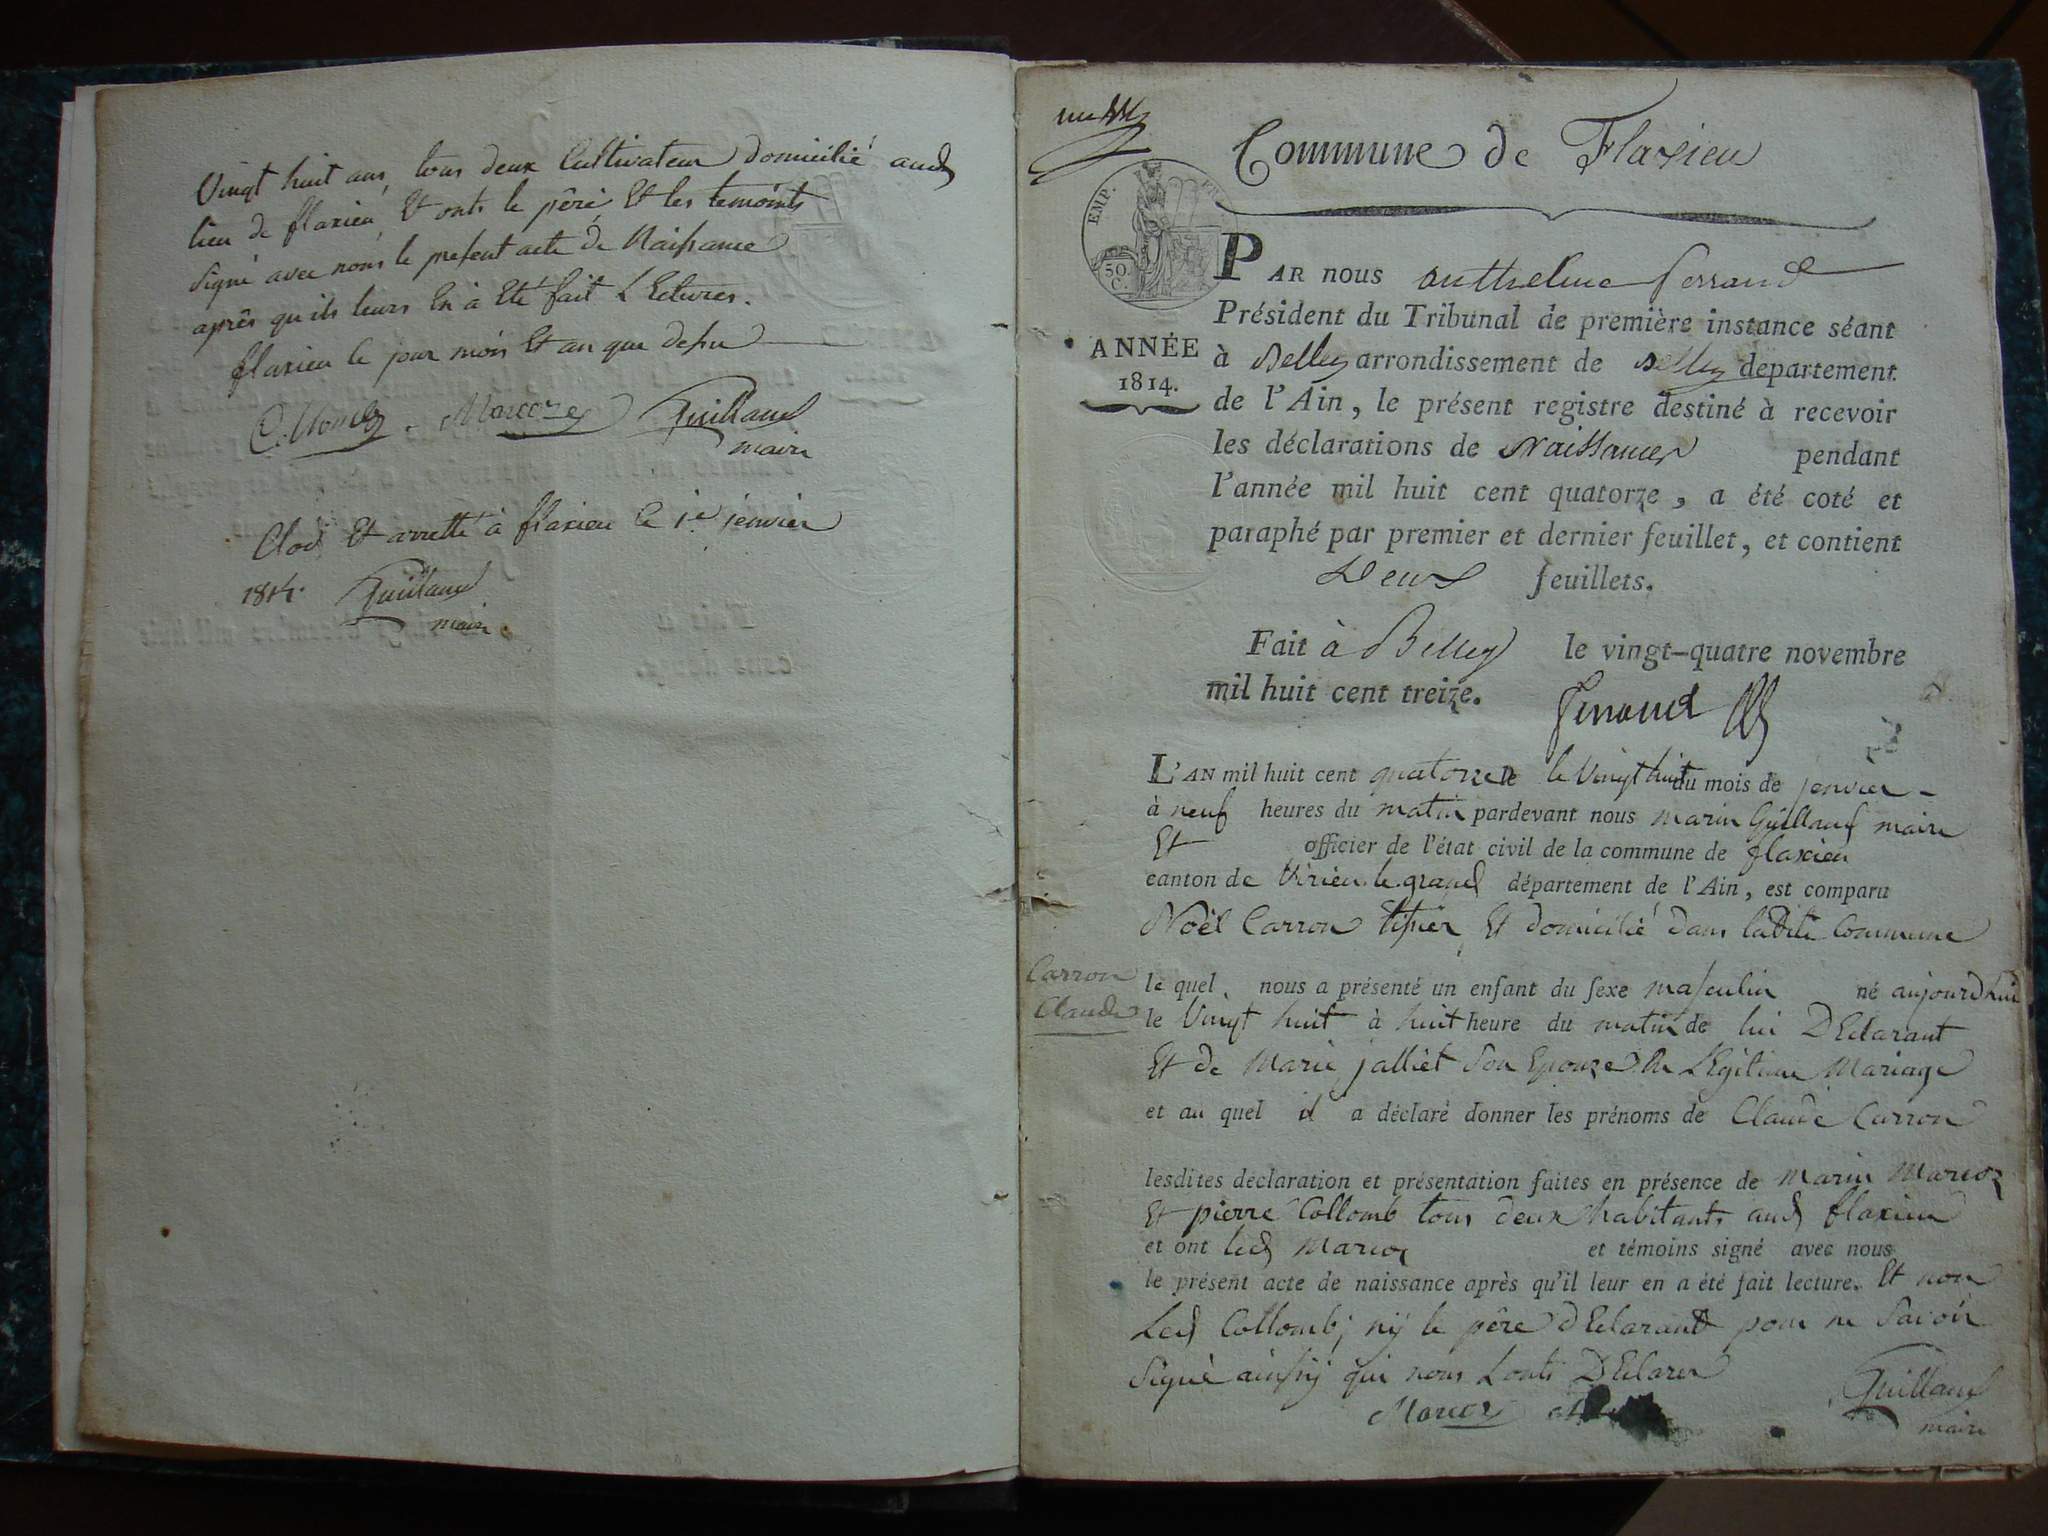 Vingt huit ans, tous deux Cultivateur domicilié aud
lieu de flaxieu, Et onts le pêre Et les temoints
Signé avec nous le present acte de Naissance
après qu'ils leurs En à Eté fait L'Ectures.
flaxieu le jour mois Et an que dessu
Marcoz Guillaud
maire
Clos Et arretté à flaxieu le 1er jenvier
1814. Guillaud
maire
Commune de Flaxieu
EMP. FR
50.
C.
ANNÉE
1814.
PAR nous anthelme ferrand
Président du Tribunal de première instance séant
à Belley arrondissement de Belley département
de l'Ain, le présent registre destiné à recevoir
les déclarations de Naissances pendant
l'année mil huit cent quatorze, a été coté et
paraphé par premier et dernier feuillet, et contient
Deux feuillets.
Fait à Belley le vingt-quatre novembre
mil huit cent treize. ferrand
L'AN mil huit cent quatorze le Vingt huit du mois de jenvier
à neuf heures du matin pardevant nous marin Guillaud maire
Et officier de l'état civil de la commune de flaxieu
canton de Virieu le grand département de l'Ain, est comparu
Noël Carron tissier Et domicilié dans ladite Commune
Carron
Claude
le quel nous a présenté un enfant du sexe masculin né aujourdhui
le Vingt huit à huit heure du matin de lui DEclarant
Et de Marie jalliet Son Epouze En LEgitime Mariage
et au quel il a déclaré donner les prénoms de Claude Carron
lesdites déclaration et présentation faites en présence de marin Marcoz
Et pierre Collomb tous deux habitants aud flaxieu
et ont led Marcoz et témoins signé avec nous
le présent acte de naissance après qu'il leur en a été fait lecture. Et non
Led Collomb; ny le père dEclarant pour ne Savoir
Signé ainssy qui nous Lonts DEclarer
Marcoz Guillaud
maire